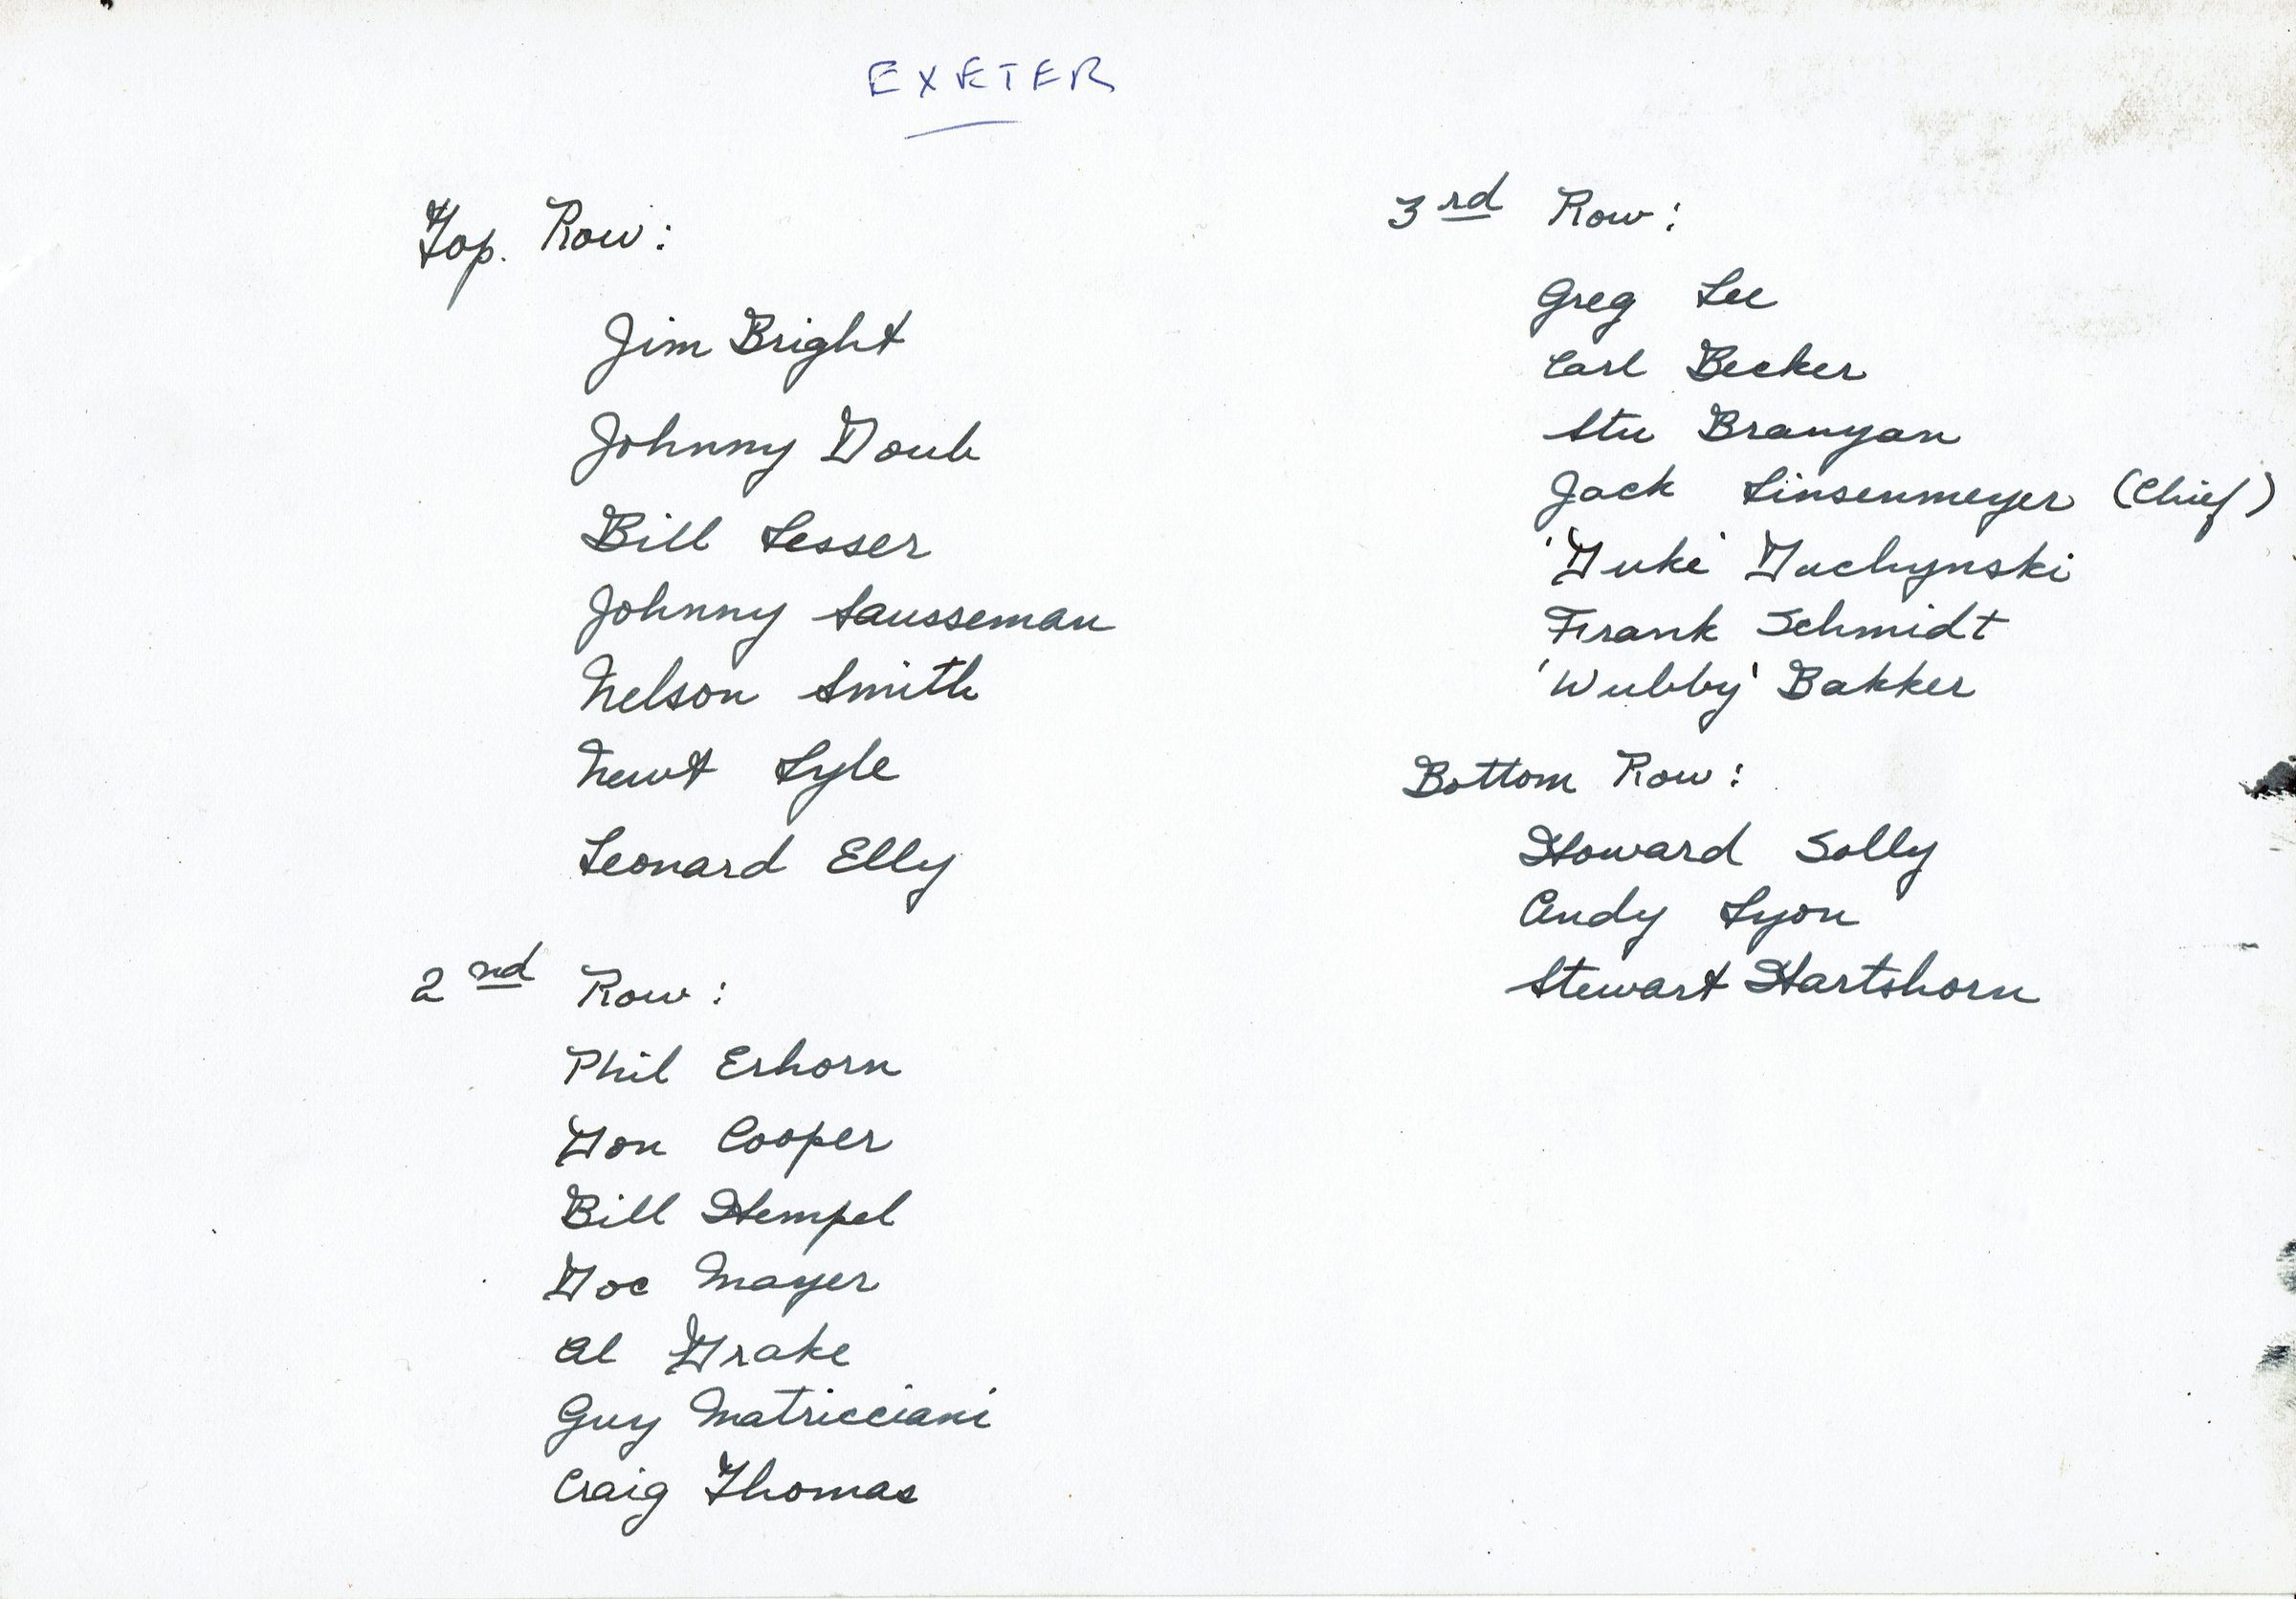 EXETER
Top. Row:
Jim Bright
Johnny Doub
Bill Lesser
Johnny Sausseman
Nelson Smith
Newt Lyle
Leonard Elly
2nd Row:
Phil Erhorn
Don Cooper
Bill Hempel
Doc Mayer
Al Drake
Guy Matricciani
Craig Thomas
3rd Row:
Greg Lee
Carl Becker
Stu Branyan
Jack Linsenmeyer (Chief)
'Duke' Duchynski
Frank Schmidt
'Wubby' Bakker
Bottom Row:
Howard Solly
Andy Lyon
Stewart Hartshorn